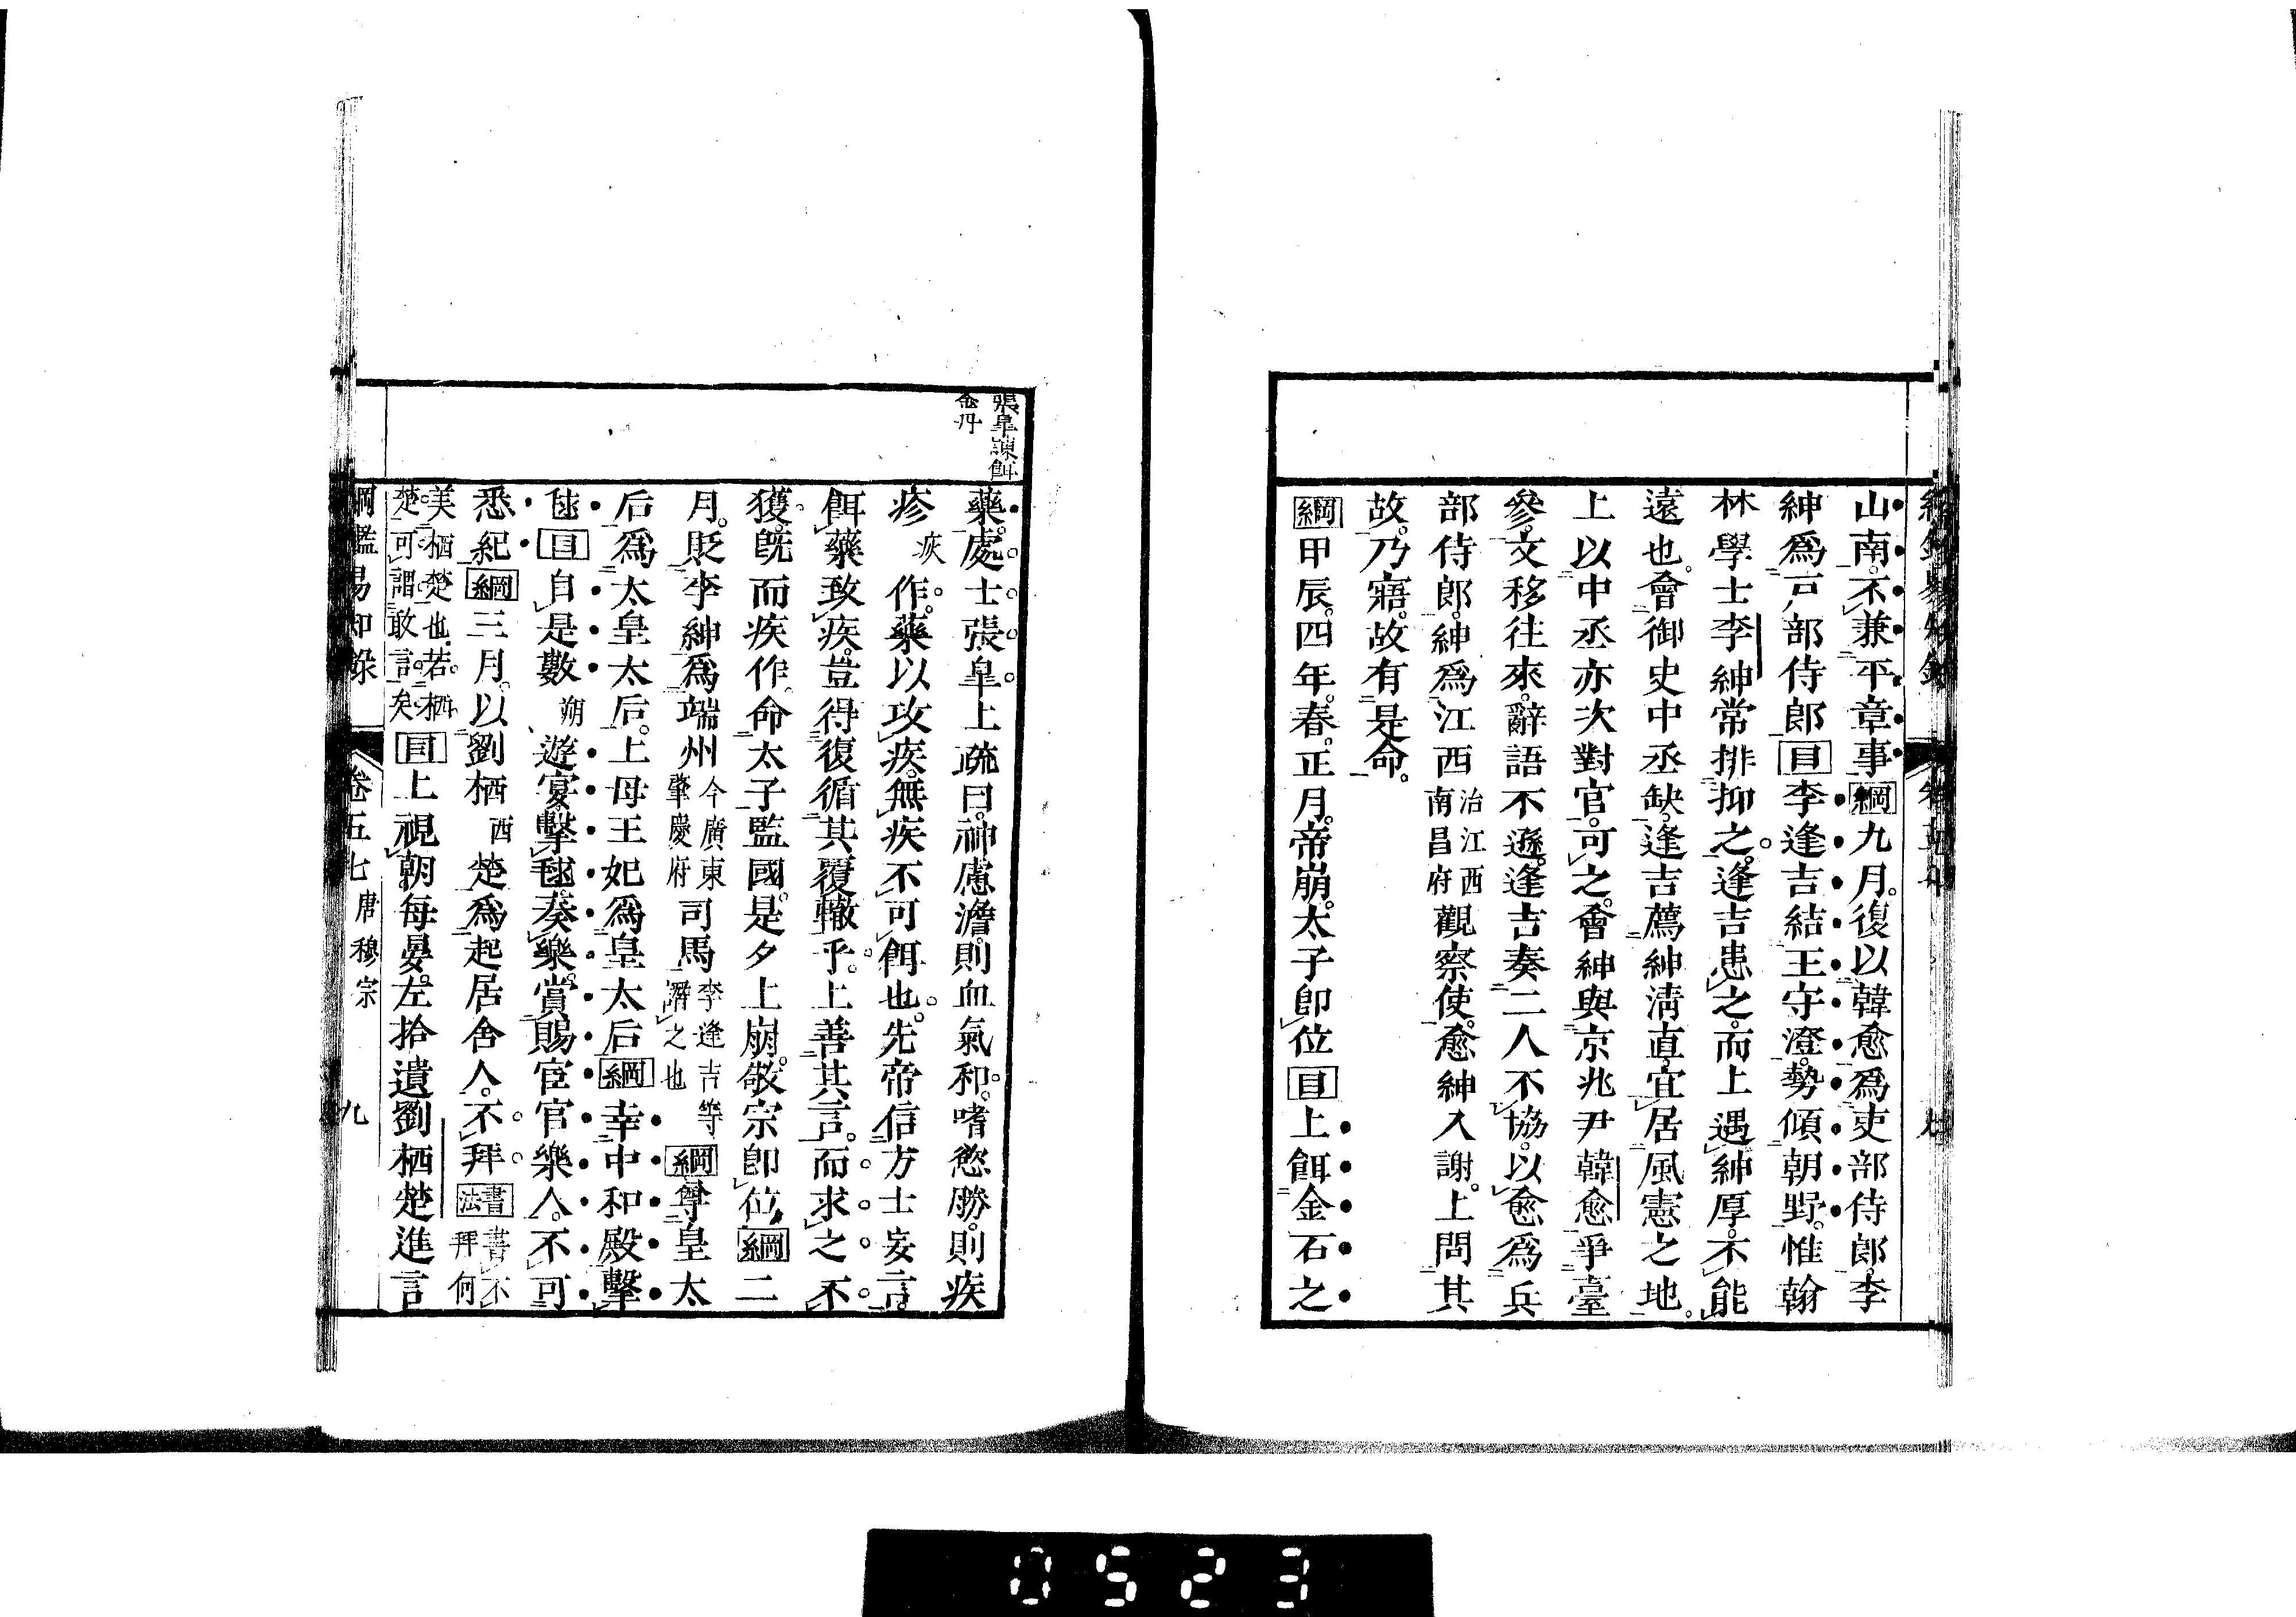 山南。不兼平章事綱九月。復以韓愈爲吏部侍郎。李
紳爲戸部侍郎目李逢吉結王守澄。勢傾朝野。惟翰
林學士李紳常排抑之。逢吉患之。而上遇紳厚。不能
遠也。會御史中丞缺。逢吉薦紳淸直。宜居風憲之地。
上以中丞亦次對官。可之。會紳與京兆尹韓愈爭臺
參。文移往來。辭語不遜。逢吉奏二人不協。以愈爲兵
部侍郎。紳爲江西治江西南昌府觀察使。愈紳入謝。上問其
故。乃寤。故有是命。
綱甲辰。四年。春。正月。帝崩。太子卽位目上餌金石之
張皐諫餌
金丹
藥。處士張皐上疏曰。神慮澹。則血氣和。嗜慾勝。則疾
疹疢作。藥以攻疾。無疾不可餌也。先帝信方士妄言。
餌藥致疾。豈得復循其覆轍乎。上善其言。而求之不
獲。旣而疾作。命太子監國。是夕上崩。敬宗卽位。綱二
月。貶李紳爲端州今廣東肇慶府司馬李逢吉等譖之也綱尊皇太
后爲太皇太后。上母王妃爲皇太后綱幸中和殿擊
毬目自是數朔遊宴。擊毬。奏樂。賞賜宦官樂人。不可
悉紀綱三月。以劉栖西楚爲起居舍人。不拜書法書不拜何
美栖楚也。若栖楚可謂敢言矣目上視朝每晏。左拾遺劉栖楚進言
綱鑑易知錄 卷五七 唐穆宗 九